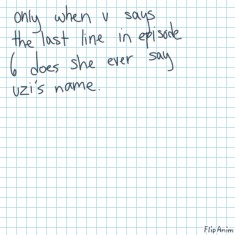 only when v says
the last line in episode
6 does she ever say
uzi's name.
FlipAnim